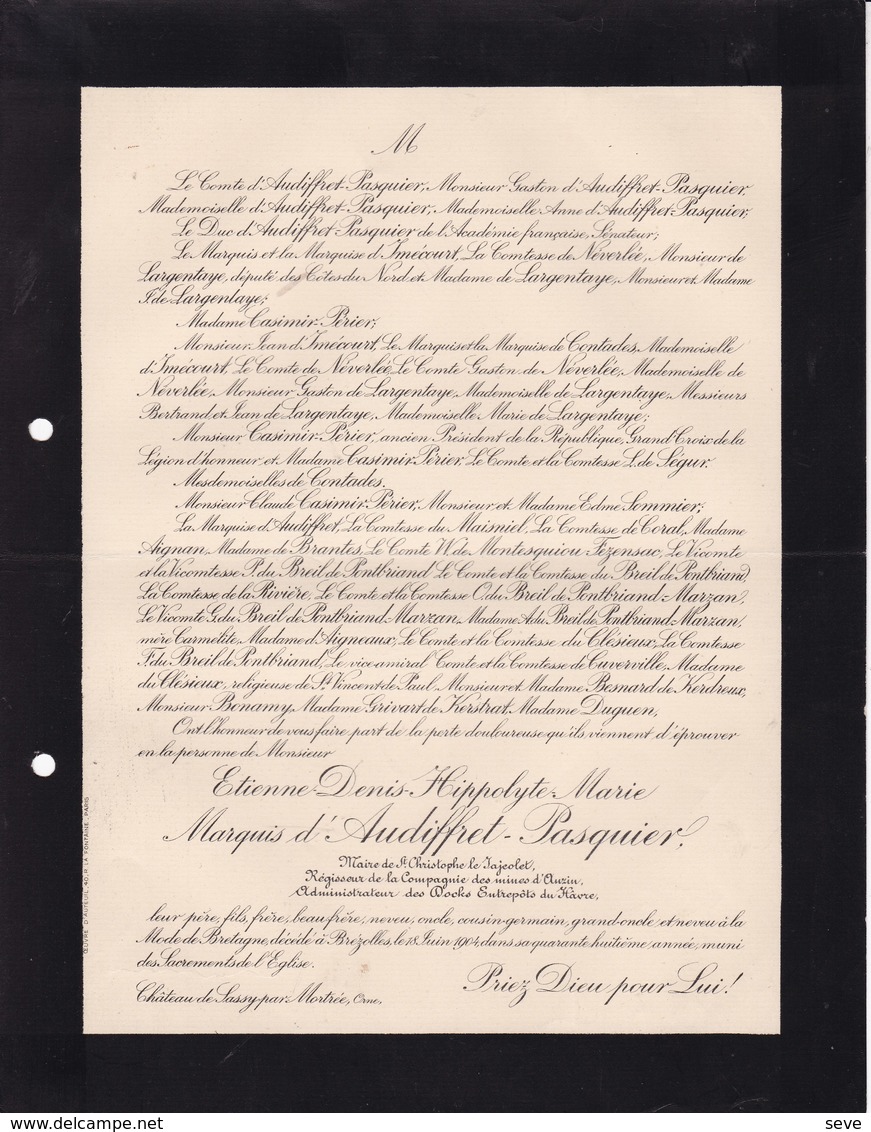 M
Le Comte d'Audiffret-Pasquier, Monsieur Gaston d'Audiffret-Pasquier,
Mademoiselle d'Audiffret-Pasquier, Mademoiselle Anne d'Audiffret-Pasquier,
Le Duc d'Audiffret-Pasquier de l'Académie française, Sénateur;
Le Marquis et la Marquise d'Imécourt, La Comtesse de Néverlée, Monsieur de
Largentaye, député des Côtes du Nord et Madame de Largentaye, Monsieur et Madame
F. de Largentaye;
Madame Casimir-Périer;
Monsieur Jean d'Imécourt, Le Marquis et la Marquise de Contades, Mademoiselle
d'Imécourt, Le Comte de Néverlée, Le Comte Gaston de Néverlée, Mademoiselle de
Néverlée, Monsieur Gaston de Largentaye, Mademoiselle de Largentaye, Messieurs
Bertrand et Jean de Largentaye, Mademoiselle Marie de Largentaye;
Monsieur Casimir-Périer, ancien Président de la République, Grand'Croix de la
Légion d'honneur et Madame Casimir-Périer, Le Comte et la Comtesse L. de Ségur.
Mesdemoiselles de Contades.
Monsieur Claude Casimir-Périer, Monsieur et Madame Edme Sommier;
La Marquise d'Audiffret, La Comtesse du Maisniel, La Comtesse de Coral, Madame
Aignan, Madame de Brantes, Le Comte W. de Montesquiou-Fezensac, Le Vicomte
et la Vicomtesse P. du Breil de Pontbriand, Le Comte et la Comtesse du Breil de Pontbriand,
La Comtesse de la Rivière, Le Comte et la Comtesse O. du Breil de Pontbriand-Marzan,
Le Vicomte G. du Breil de Pontbriand-Marzan, Madame A. du Breil de Pontbriand-Marzan,
mère Carmélite, Madame d'Aigneaux, Le Comte et la Comtesse du Clésieux, La Comtesse
F. du Breil de Pontbriand, Le vice-amiral Comte et la Comtesse de Cuverville, Madame
du Clésieux, religieuse de St Vincent de Paul, Monsieur et Madame Besnard de Kerdreux,
Monsieur Bonamy, Madame Grivart de Kerstrat, Madame Duguen,
Ont l'honneur de vous faire part de la perte douloureuse qu'ils viennent d'éprouver
en la personne de Monsieur
Etienne-Denis-Hippolyte-Marie
Marquis d'Audiffret-Pasquier,
Maire de St Christophe le Jajolet,
Régisseur de la Compagnie des mines d'Anzin,
Administrateur des Docks Entrepôts du Hâvre,
leur père, fils, frère, beau-frère, neveu, oncle, cousin-germain, grand-oncle et neveu à la
Mode de Bretagne, décédé à Brézolles, le 18 Juin 1904, dans sa quarante huitième année, muni
des Sacrements de l'Eglise.
Priez Dieu pour Lui!
Château de Sassy par Mortrée, Orne,
ŒUVRE D'AUTEUIL, 40, R. LA FONTAINE, PARIS
www.delcampe.net
seve